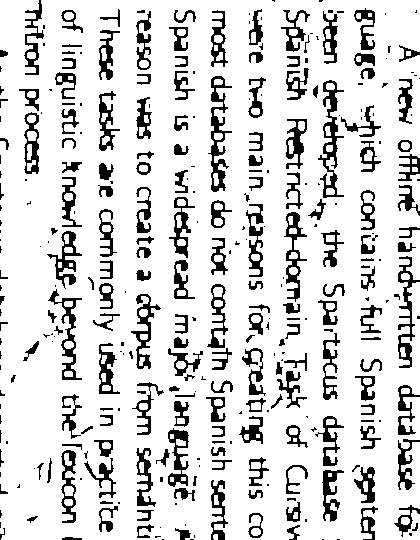 A new offline handwritten database for
guage, which contains full Spanish senten
been developed, the Spartacus database
Spanish Restricted-domain Task of Cursiv
were two main reasons for creating this co
most databases do not contain Spanish sente
Spanish is a widespread major language.
reason was to create a corpus from semanti
These tasks are commonly used in practice
of linguistic knowledge beyond the lexicon
nition process.